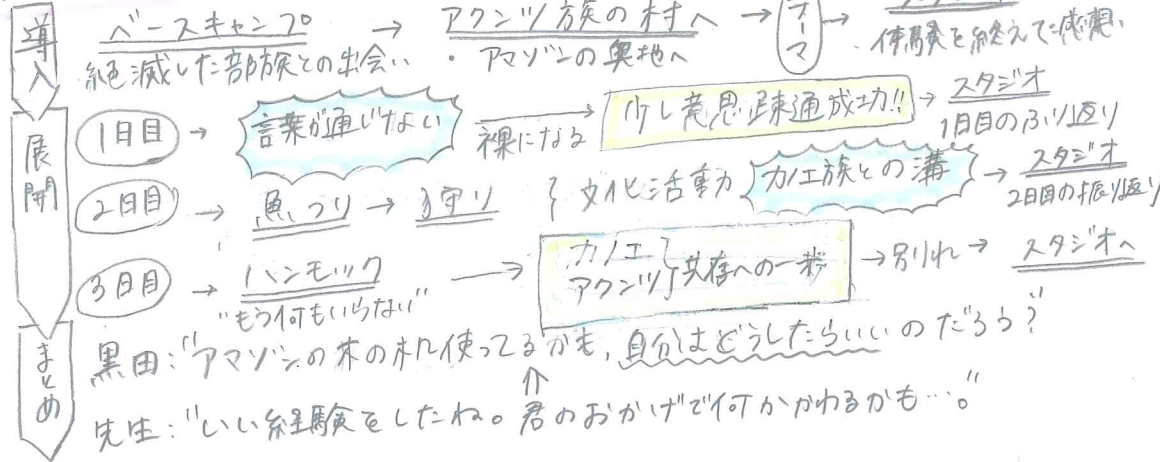 導入
ベースキャンプ → アクンツ族の村へ → テーマ →
絶滅した部族との出会い ・アマゾンの奥地へ ・体験を終えて感想
展開
1日目 → 言葉が通じない 裸になる → 少し意思疎通成功!! → スタジオ
1日目のふり返り
2日目 → 魚つり → 狩り 文化活動 カノエ族との溝 → スタジオ
2日目の振り返り
3日目 → ハンモック → カノエ アクンツ 共存への一歩 → 別れ → スタジオへ
"もう何もいらない"
まとめ
黒田:"アマゾンの木の机使ってるかも,自分はどうしたらいいのだろう?"
先生:"いい経験をしたね。君のおかげで何かかわるかも…。"